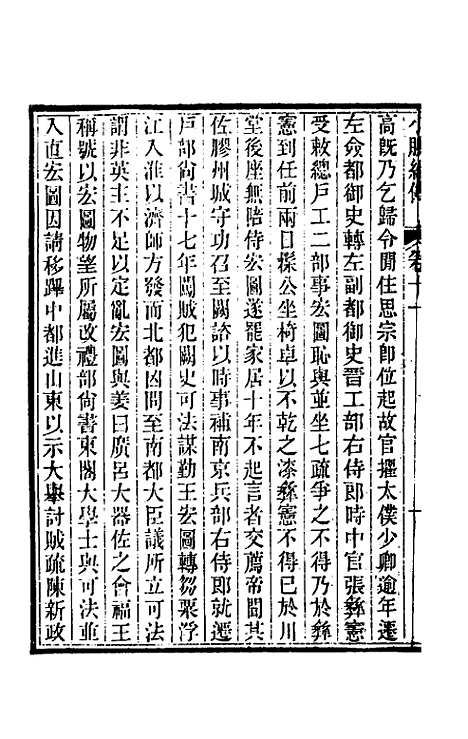 小腆紀傳 卷十一
高旣乃乞歸令閒住思宗卽位起故官擢太僕少卿逾年遷
左僉都御史轉左副都御史晋工部右侍郎時中官張彝憲
受敕總戶工二部事宏圖恥與並坐七疏爭之不得乃於彝
憲到任前兩日㩇公坐椅卓以不乾之漆彝憲不得已於川
堂後座無陪侍宏圖遂罷家居十年不起言者交薦帝聞其
佐膠州城守功召至闕諮以時事補南京兵部右侍郎就遷
戶部尙書十七年闖賊犯闕史可法謀勤王宏圖轉芻粟浮
江入淮以濟師方發而北都凶問至南都大臣議所立可法
謂非英主不足以定亂宏圖與姜曰廣呂大器佐之會福王
稱號以宏圖物望所屬改禮部尙書東閣大學士與可法並
入直宏圖因請移蹕中都進山東以示大舉討賊疏陳新政